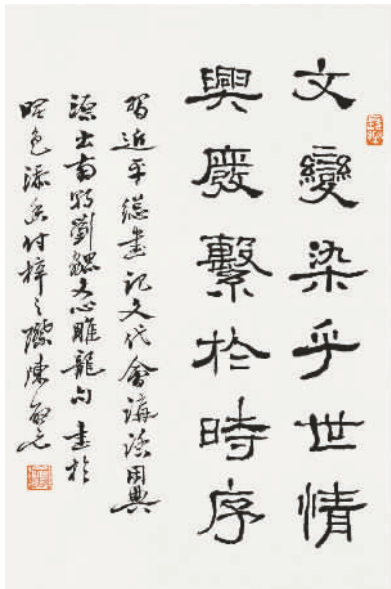 文變染乎世情
興廢繫於時序
習近平總書記文代會講話用典
源出南朝劉勰文心雕龍句 書於
曙色添香付梓之際陳